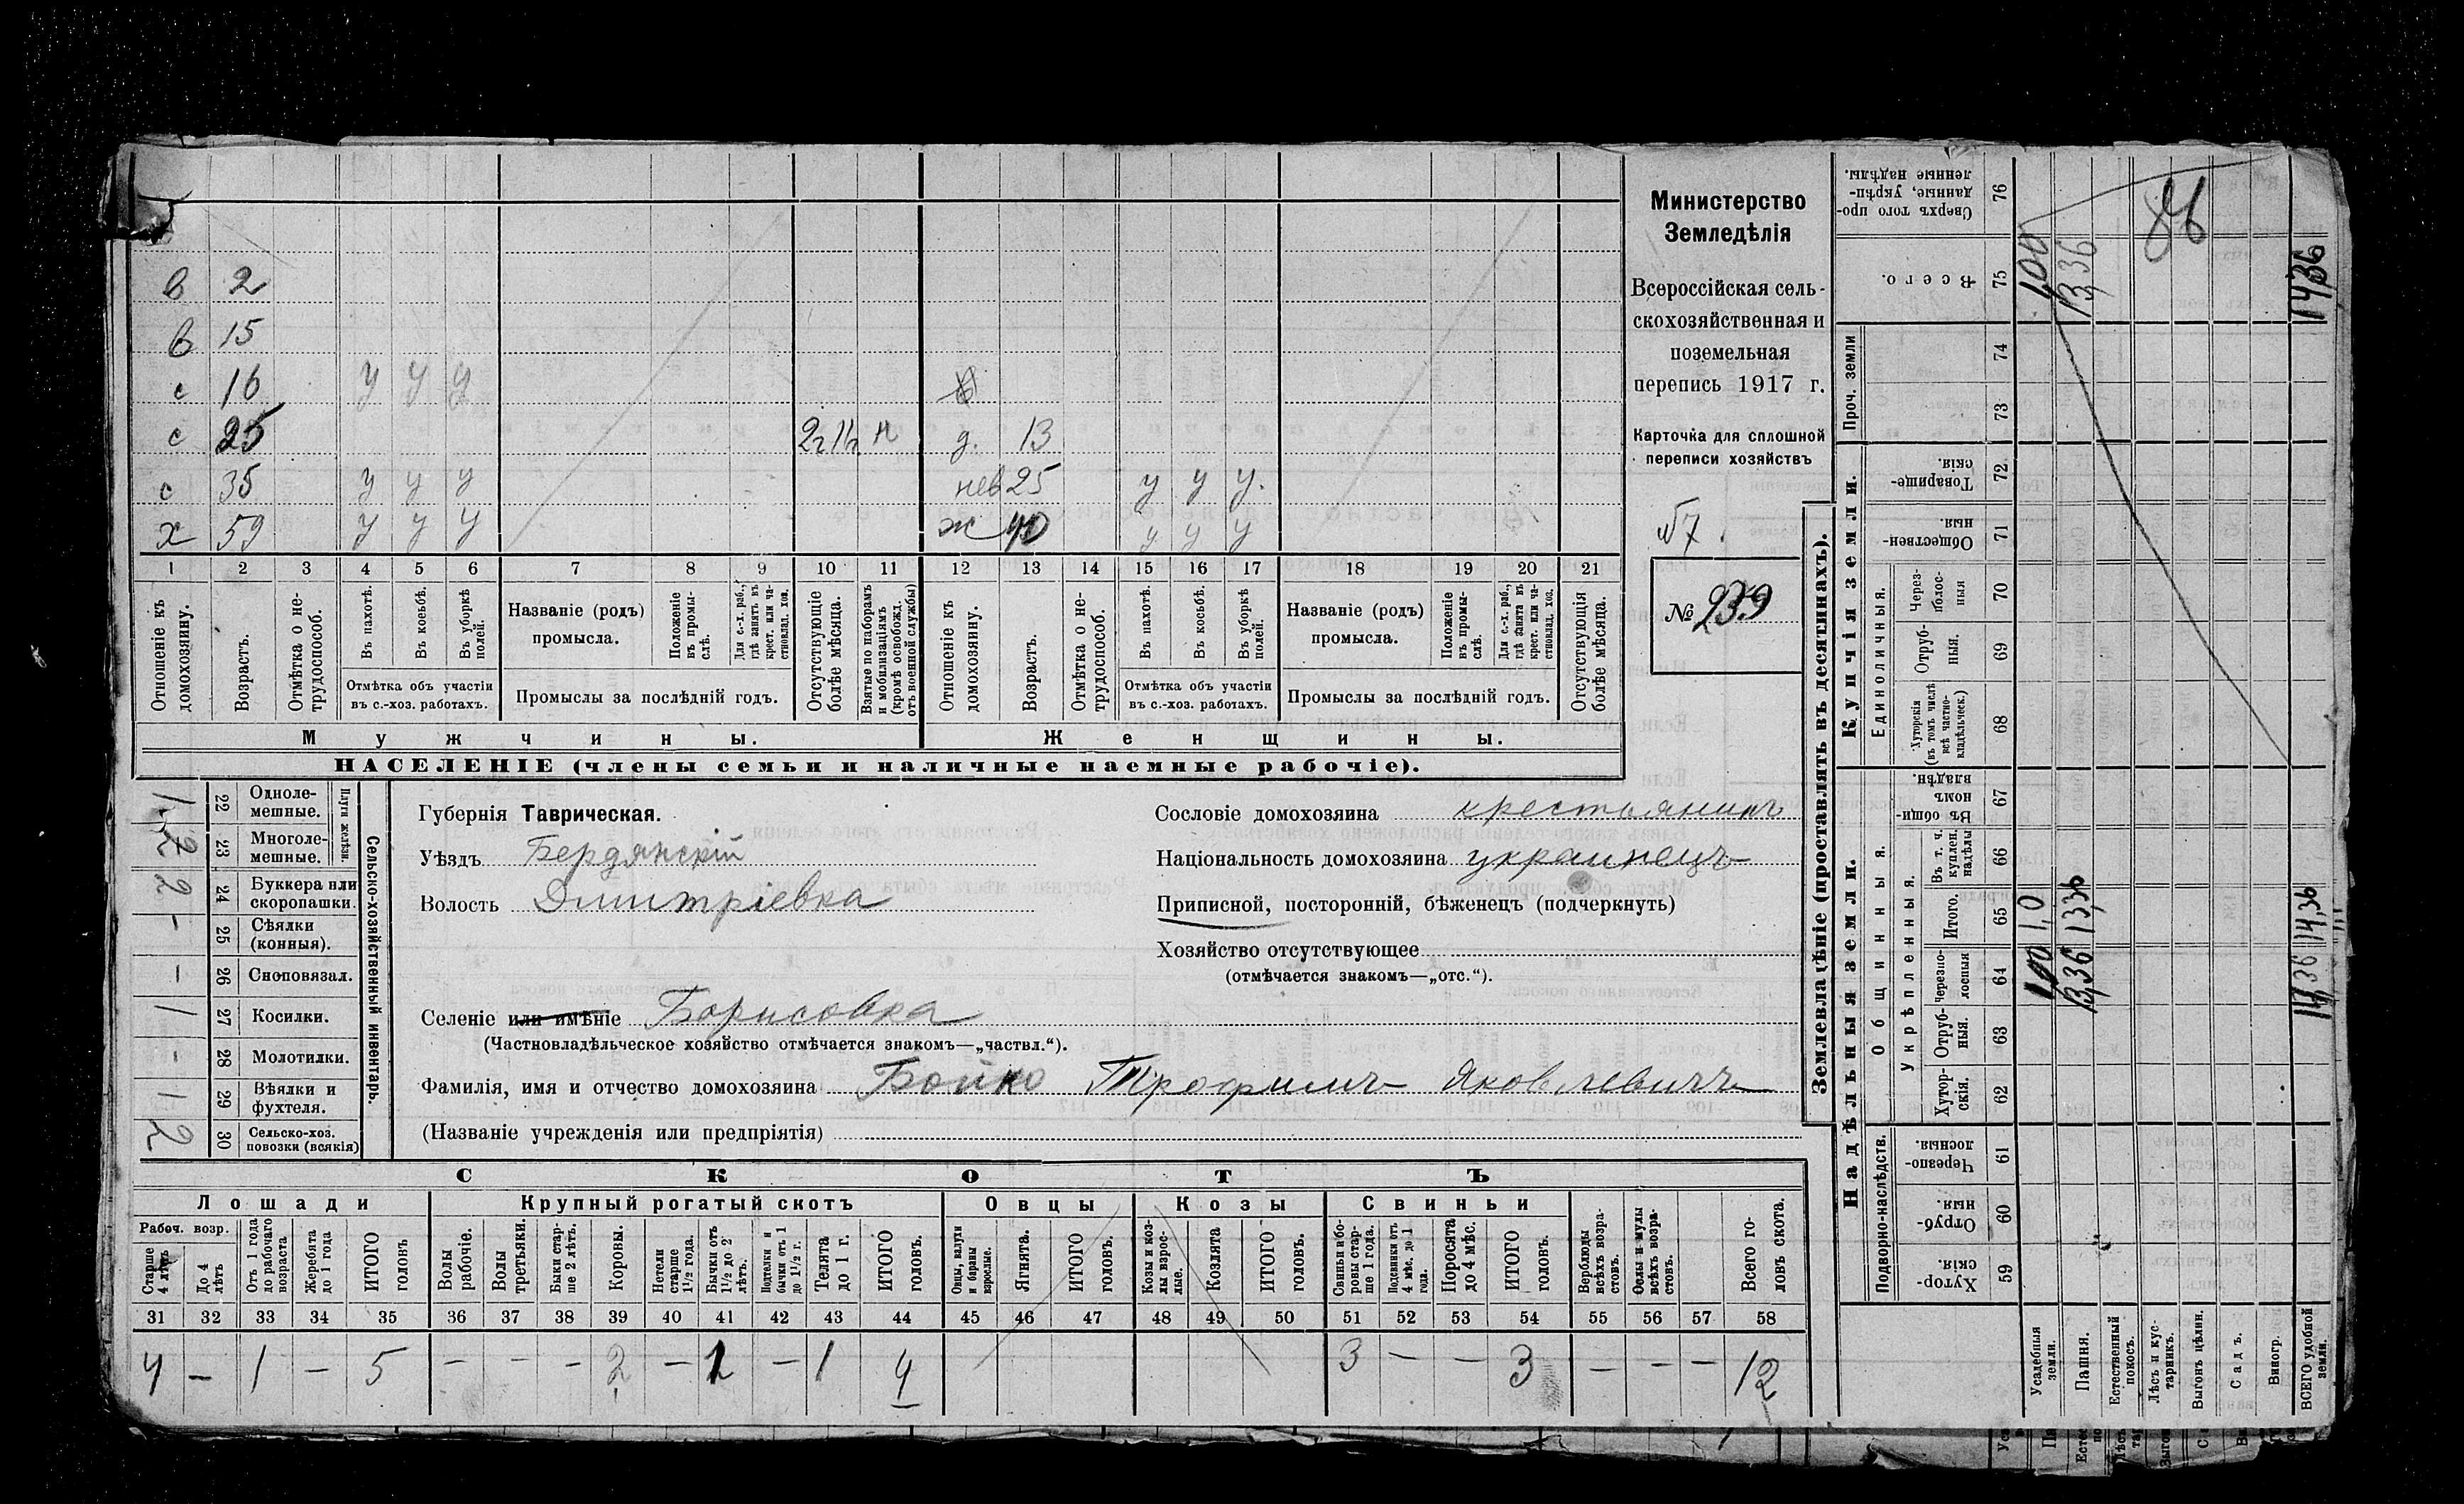 в 2
в 15
с 16 у у у
с 25 2г 1г н д. 13
с 35 у у у нев 25 у у у.
х 59 у у у ж 40 у у у
1 2 3 4 5 6 7 8 9 10 11 12 13 14 15 16 17 18 19 20 21
Отношеніе къ домохозяину.
Возрастъ.
Отмѣтка о не-
трудоспособ.
Въ пахотѣ.
Въ косьбѣ.
Въ уборкѣ полей.
Отмѣтка объ участіи
въ с.-хоз. работахъ.
Названіе (родъ)
промысла.
Положеніе въ промы-
слѣ.
Для с.-х. раб.,
гдѣ занятъ въ
крест. или ча-
стновлад. хоз.
Промыслы за послѣдній годъ.
Отсутствующіе
болѣе мѣсяца.
Взятые по наборамъ
и мобилизаціямъ
(кромѣ освобожд.
отъ военной службы)
Отношеніе къ
домохозяину.
Возрастъ.
Отмѣтка о не-
трудоспособ.
Въ пахотѣ.
Въ косьбѣ.
Въ уборкѣ
полей.
Отмѣтка объ участіи
въ с.-хоз. работахъ.
Названіе (родъ)
промысла.
Положеніе
въ промы-
слѣ.
Для с.-х. раб.,
гдѣ занята въ
крест. или ча-
стновлад. хоз.
Промыслы за послѣдній годъ.
Отсутствующія
болѣе мѣсяца.
Мужчины.
Женщины.
НАСЕЛЕНІЕ (члены семьи и наличные наемные рабочіе).
Министерство
Земледѣлія
Всероссійская сель-
скохозяйственная и
поземельная
перепись 1917 г.
Карточка для сплошной
переписи хозяйствъ
№ 239
Сельско-хозяйственный инвентарь.
Плуги желѣзн.
1 22 Одноле-
мешные.
2 23 Многоле-
мешные.
2 24 Буккера или
скоропашки.
– 25 Сѣялки
(конныя).
– 26 Сноповязал.
1 27 Косилки.
– 28 Молотилки.
1 29 Вѣялки и
фухтеля.
2 30 Сельско-хоз.
повозки (всякія)
Губернія Таврическая.
Уѣздъ Бердянскій
Волость Дмитріевка
Сословіе домохозяина крестьянинъ
Національность домохозяина украинецъ
Приписной, посторонній, бѣженецъ (подчеркнуть)
Хозяйство отсутствующее
(отмѣчается знакомъ—„отс.“).
Селеніе или имѣніе Борисовка
(Частновладѣльческое хозяйство отмѣчается знакомъ—„частвл.“).
Фамилія, имя и отчество домохозяина Бойко Трофимъ Яковлевичъ
(Названіе учрежденія или предпріятія)
СКОТЪ
Лошади Крупный рогатый скотъ Овцы Козы Свиньи
Рабоч. возр.
Старше
4 лѣтъ
До 4
лѣтъ
Отъ 1 года
до рабочаго
возраста
Жеребята
до 1 года
ИТОГО
головъ
Волы
рабочіе.
Волы
третьяки.
Быки стар-
ше 2 лѣтъ.
Коровы.
Нетели
старше
1½ года.
Бычки отъ
1½ до 2
лѣтъ.
Подтелки и
бычки отъ 1
до 1½ г.
Телята
до 1 г.
ИТОГО
головъ.
Овцы, валухи
и бараны
взрослые.
Ягнята.
ИТОГО
головъ.
Козы и коз-
лы взрос-
лые.
Козлята
ИТОГО
головъ.
Свиньи и бо-
ровы стар-
ше 1 года.
Подсвинки отъ
4 мѣс. до 1
года.
Поросята
до 4 мѣс.
ИТОГО
головъ.
Верблюды
всѣхъ возра-
стовъ.
Ослы и мулы
всѣхъ возра-
стовъ.
Всего го-
ловъ скота.
31 32 33 34 35 36 37 38 39 40 41 42 43 44 45 46 47 48 49 50 51 52 53 54 55 56 57 58
4 – 1 – 5 – – – 2 – 1 – 1 4 3 – – 3 – – – 12
Землевладѣніе (проставлять въ десятинахъ).
Купчія земли.
Надѣльныя земли.
Единоличныя.
Общинныя.
Укрѣпленныя.
Подворно-наслѣдств.
Проч. земли
Сверхъ того про-
данные, укрѣп-
ленные надѣлы.
76
Всего.
75
74
73
Товарище-
скія.
72
Обществен-
ныя
71
Через-
полос-
ныя
70
Отруб-
ныя.
69
Хуторскія
(въ томъ числѣ
всѣ частно-
владѣльческ.)
68
Въ общин-
номъ
владѣн.
67
Въ т. ч.
куплен.
надѣлы
66
Итого.
65
Черезпо-
лосныя
64
Отруб-
ныя.
63
Хутор-
скія.
62
Черезпо-
лосныя.
61
Отруб-
ныя.
60
Хутор-
скія.
59
Усадебныя
земли.
1,00 1,0 1,00
Пашня.
13,36 13,36 13,36
Естественный
покосъ.
Лѣсъ и кус-
тарникъ.
Выгонъ цѣлин.
Садъ.
Виногр.
ВСЕГО удобной
земли.
14,36 14,36 14,36